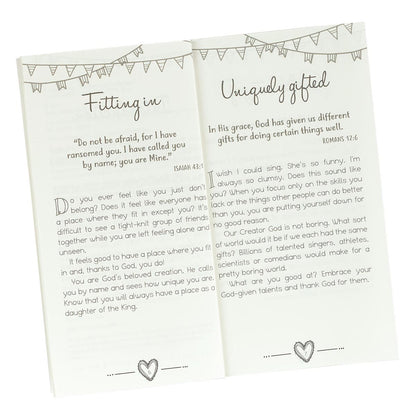 Fitting in
"Do not be afraid, for I have
ransomed you. I have called you
by name; you are Mine."
ISAIAH 43:1
Do you ever feel like you just don't
belong? Does it feel like everyone has
a place where they fit in except you? It's
difficult to see a tight-knit group of friends
together while you are left feeling alone and
unseen.
It feels good to have a place where you fit
in and, thanks to God, you do!
You are God's beloved creation. He calls
you by name and sees how unique you are.
Know that you will always have a place as a
daughter of the King.
Uniquely gifted
In His grace, God has given us different
gifts for doing certain things well.
ROMANS 12:6
I wish I could sing. She's so funny. I'm
always so clumsy. Does this sound like
you? When you focus only on the skills you
lack or the things other people can do better
than you, you are putting yourself down for
no good reason.
Our Creator God is not boring. What sort
of world would it be if we each had the same
gifts? Billions of talented singers, athletes,
scientists or comedians would make for a
pretty boring world.
What are you good at? Embrace your
God-given talents and thank God for them.